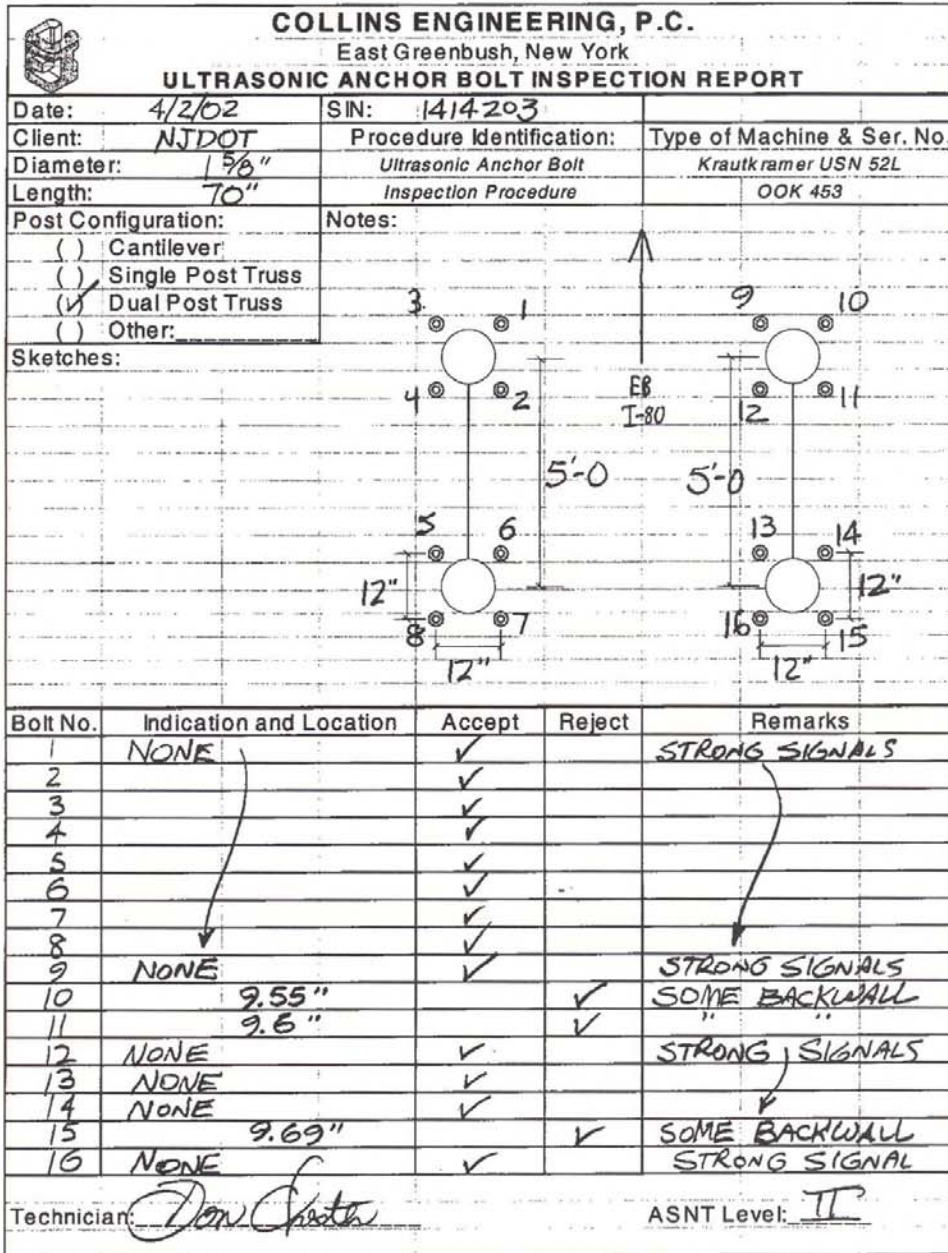 COLLINS ENGINEERING, P.C.
East Greenbush, New York
ULTRASONIC ANCHOR BOLT INSPECTION REPORT
Date: 4/2/02 SIN: 1414203
Client: NJDOT Procedure Identification: Type of Machine & Ser. No.
Diameter: 1 5/8" Ultrasonic Anchor Bolt Krautkramer USN 52L
Length: 70" Inspection Procedure OOK 453
Post Configuration: Notes:
( ) Cantilever
( ) Single Post Truss
(✓) Dual Post Truss
( ) Other:
Sketches:
3 1 9 10
4 2 EB 12 11
I-80
5'-0 5'-0
5 6 13 14
12" 12"
8 7 16 15
12" 12"
Bolt No. Indication and Location Accept Reject Remarks
1 NONE ✓ STRONG SIGNALS
2 ✓
3 ✓
4 ✓
5 ✓
6 ✓
7 ✓
8 ✓
9 NONE ✓ STRONG SIGNALS
10 9.55" ✓ SOME BACKWALL
11 9.6" ✓ " "
12 NONE ✓ STRONG SIGNALS
13 NONE ✓
14 NONE ✓
15 9.69" ✓ SOME BACKWALL
16 NONE ✓ STRONG SIGNAL
Technician: Don ASNT Level: II